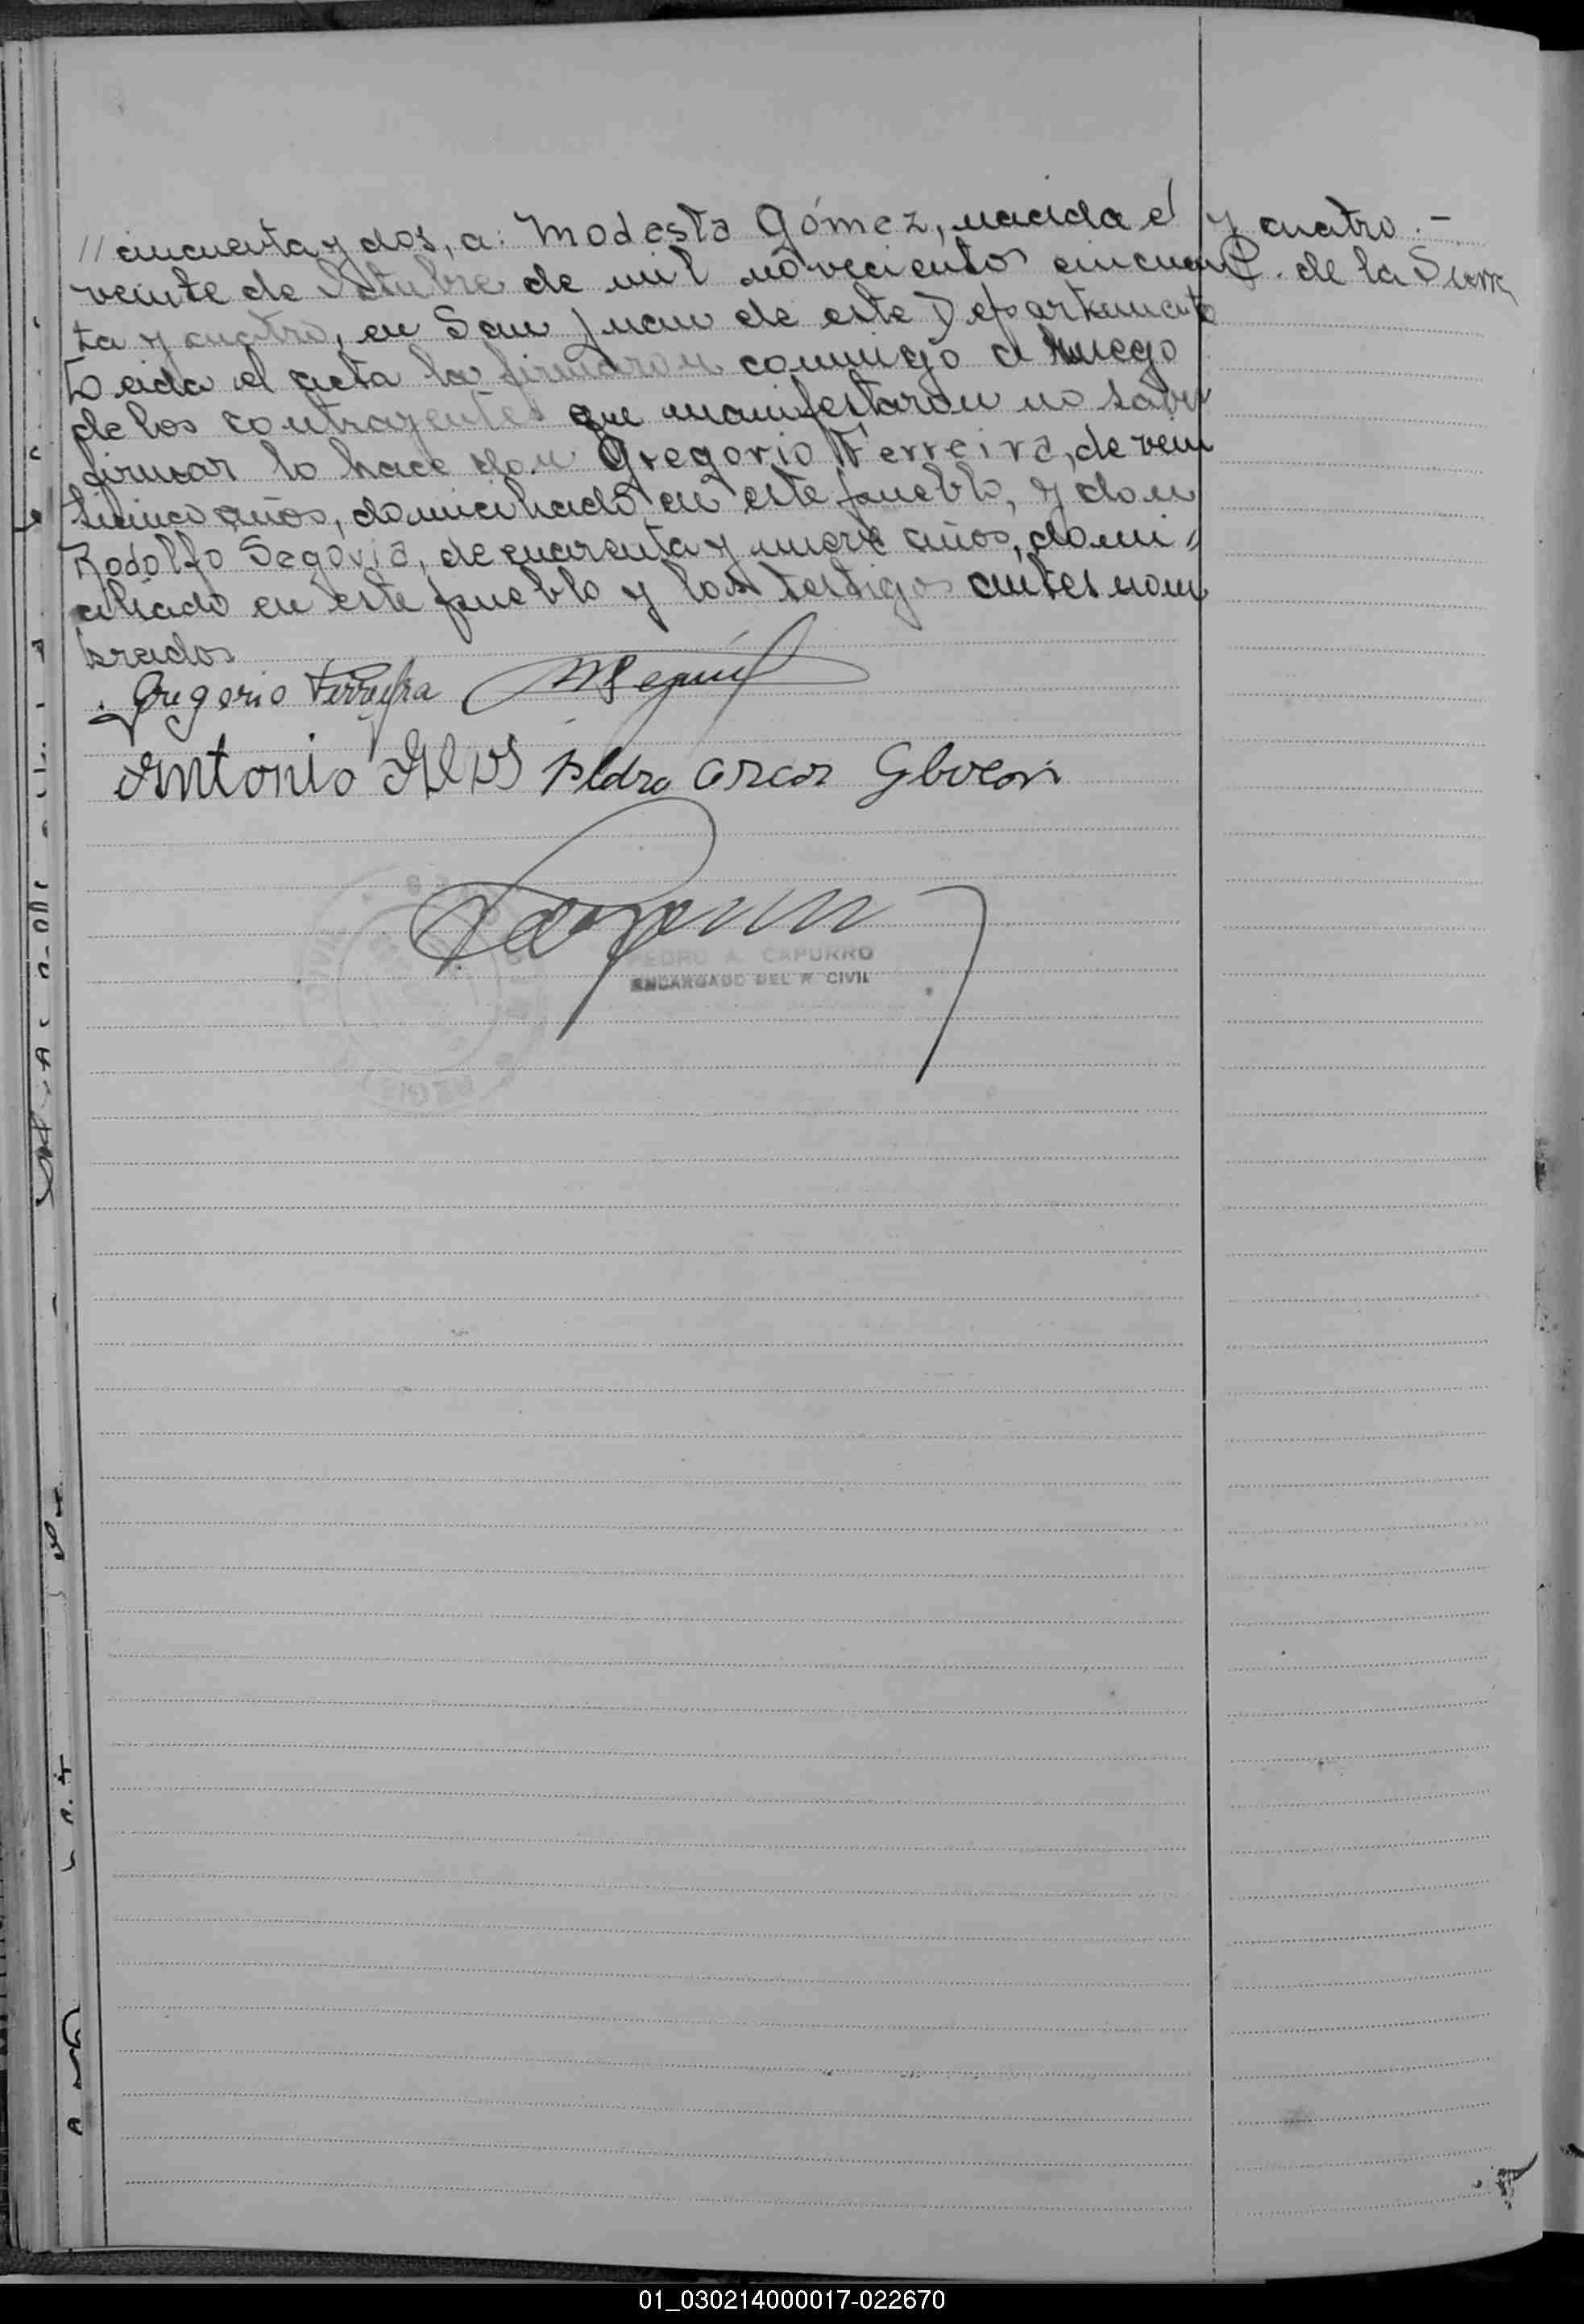 // cincuenta y dos, a: Modesta Gómez, nacida el
veinte de Octubre de mil novecientos cincuen
ta y cuatro, en San Juan de este Departamento
Leida el acta la firmaron conmigo a ruego
de los contrayentes que manifestaron no saber
firmar lo hace don Gregorio Ferreira, de vein
ticinco años, domiciliado en este pueblo, y don
Rodolfo Segovia, de cuarenta y nueve años, domi=
ciliado en este pueblo y los testigos antes nom
brados
y cuatro.-
P. de la Sierra
Gregorio Ferreyra
Antonio
Pedro Oscar
PEDRO A. CAPURRO
ENCARGADO DEL R. CIVIL
01_030214000017-022670